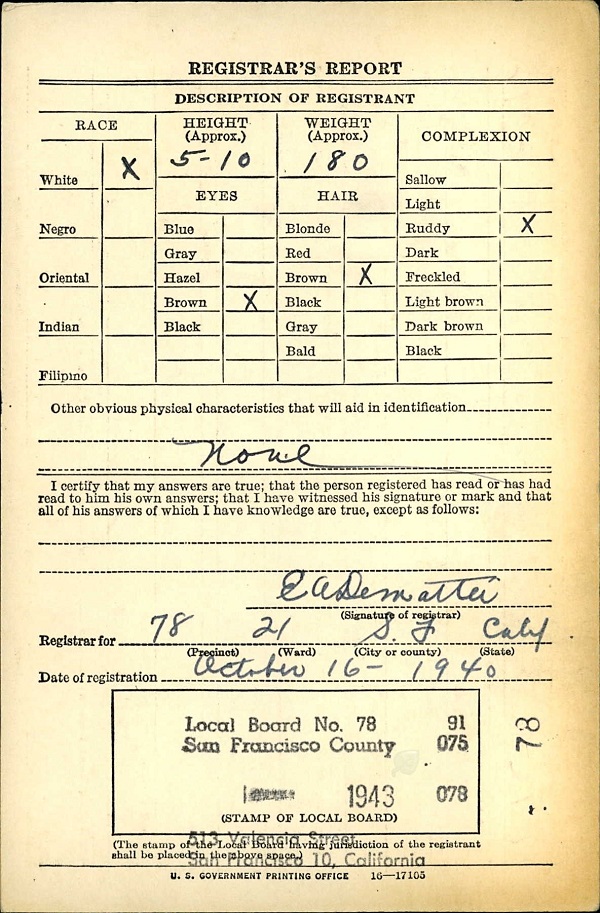 REGISTRAR'S REPORT
DESCRIPTION OF REGISTRANT
RACE
HEIGHT (Approx.)
WEIGHT (Approx.)
COMPLEXION
5-10
180
White X
Negro
Oriental
Indian
Filipino
EYES
Blue
Gray
Hazel
Brown X
Black
HAIR
Blonde
Red
Brown X
Black
Gray
Bald
Sallow
Light
Ruddy X
Dark
Freckled
Light brown
Dark brown
Black
Other obvious physical characteristics that will aid in identification
None
I certify that my answers are true; that the person registered has read or has had
read to him his own answers; that I have witnessed his signature or mark and that
all of his answers of which I have knowledge are true, except as follows:
E A Demattei
(Signature of registrar)
Registrar for 78 21 S. F Calif
(Precinct) (Ward) (City or county) (State)
Date of registration October 16- 1940
Local Board No. 78 91
San Francisco County 075
1943 078
78
(STAMP OF LOCAL BOARD)
513 Valencia Street
(The stamp of the Local Board having jurisdiction of the registrant
shall be placed in the above space.)
San Francisco 10, California
U. S. GOVERNMENT PRINTING OFFICE 16—17105